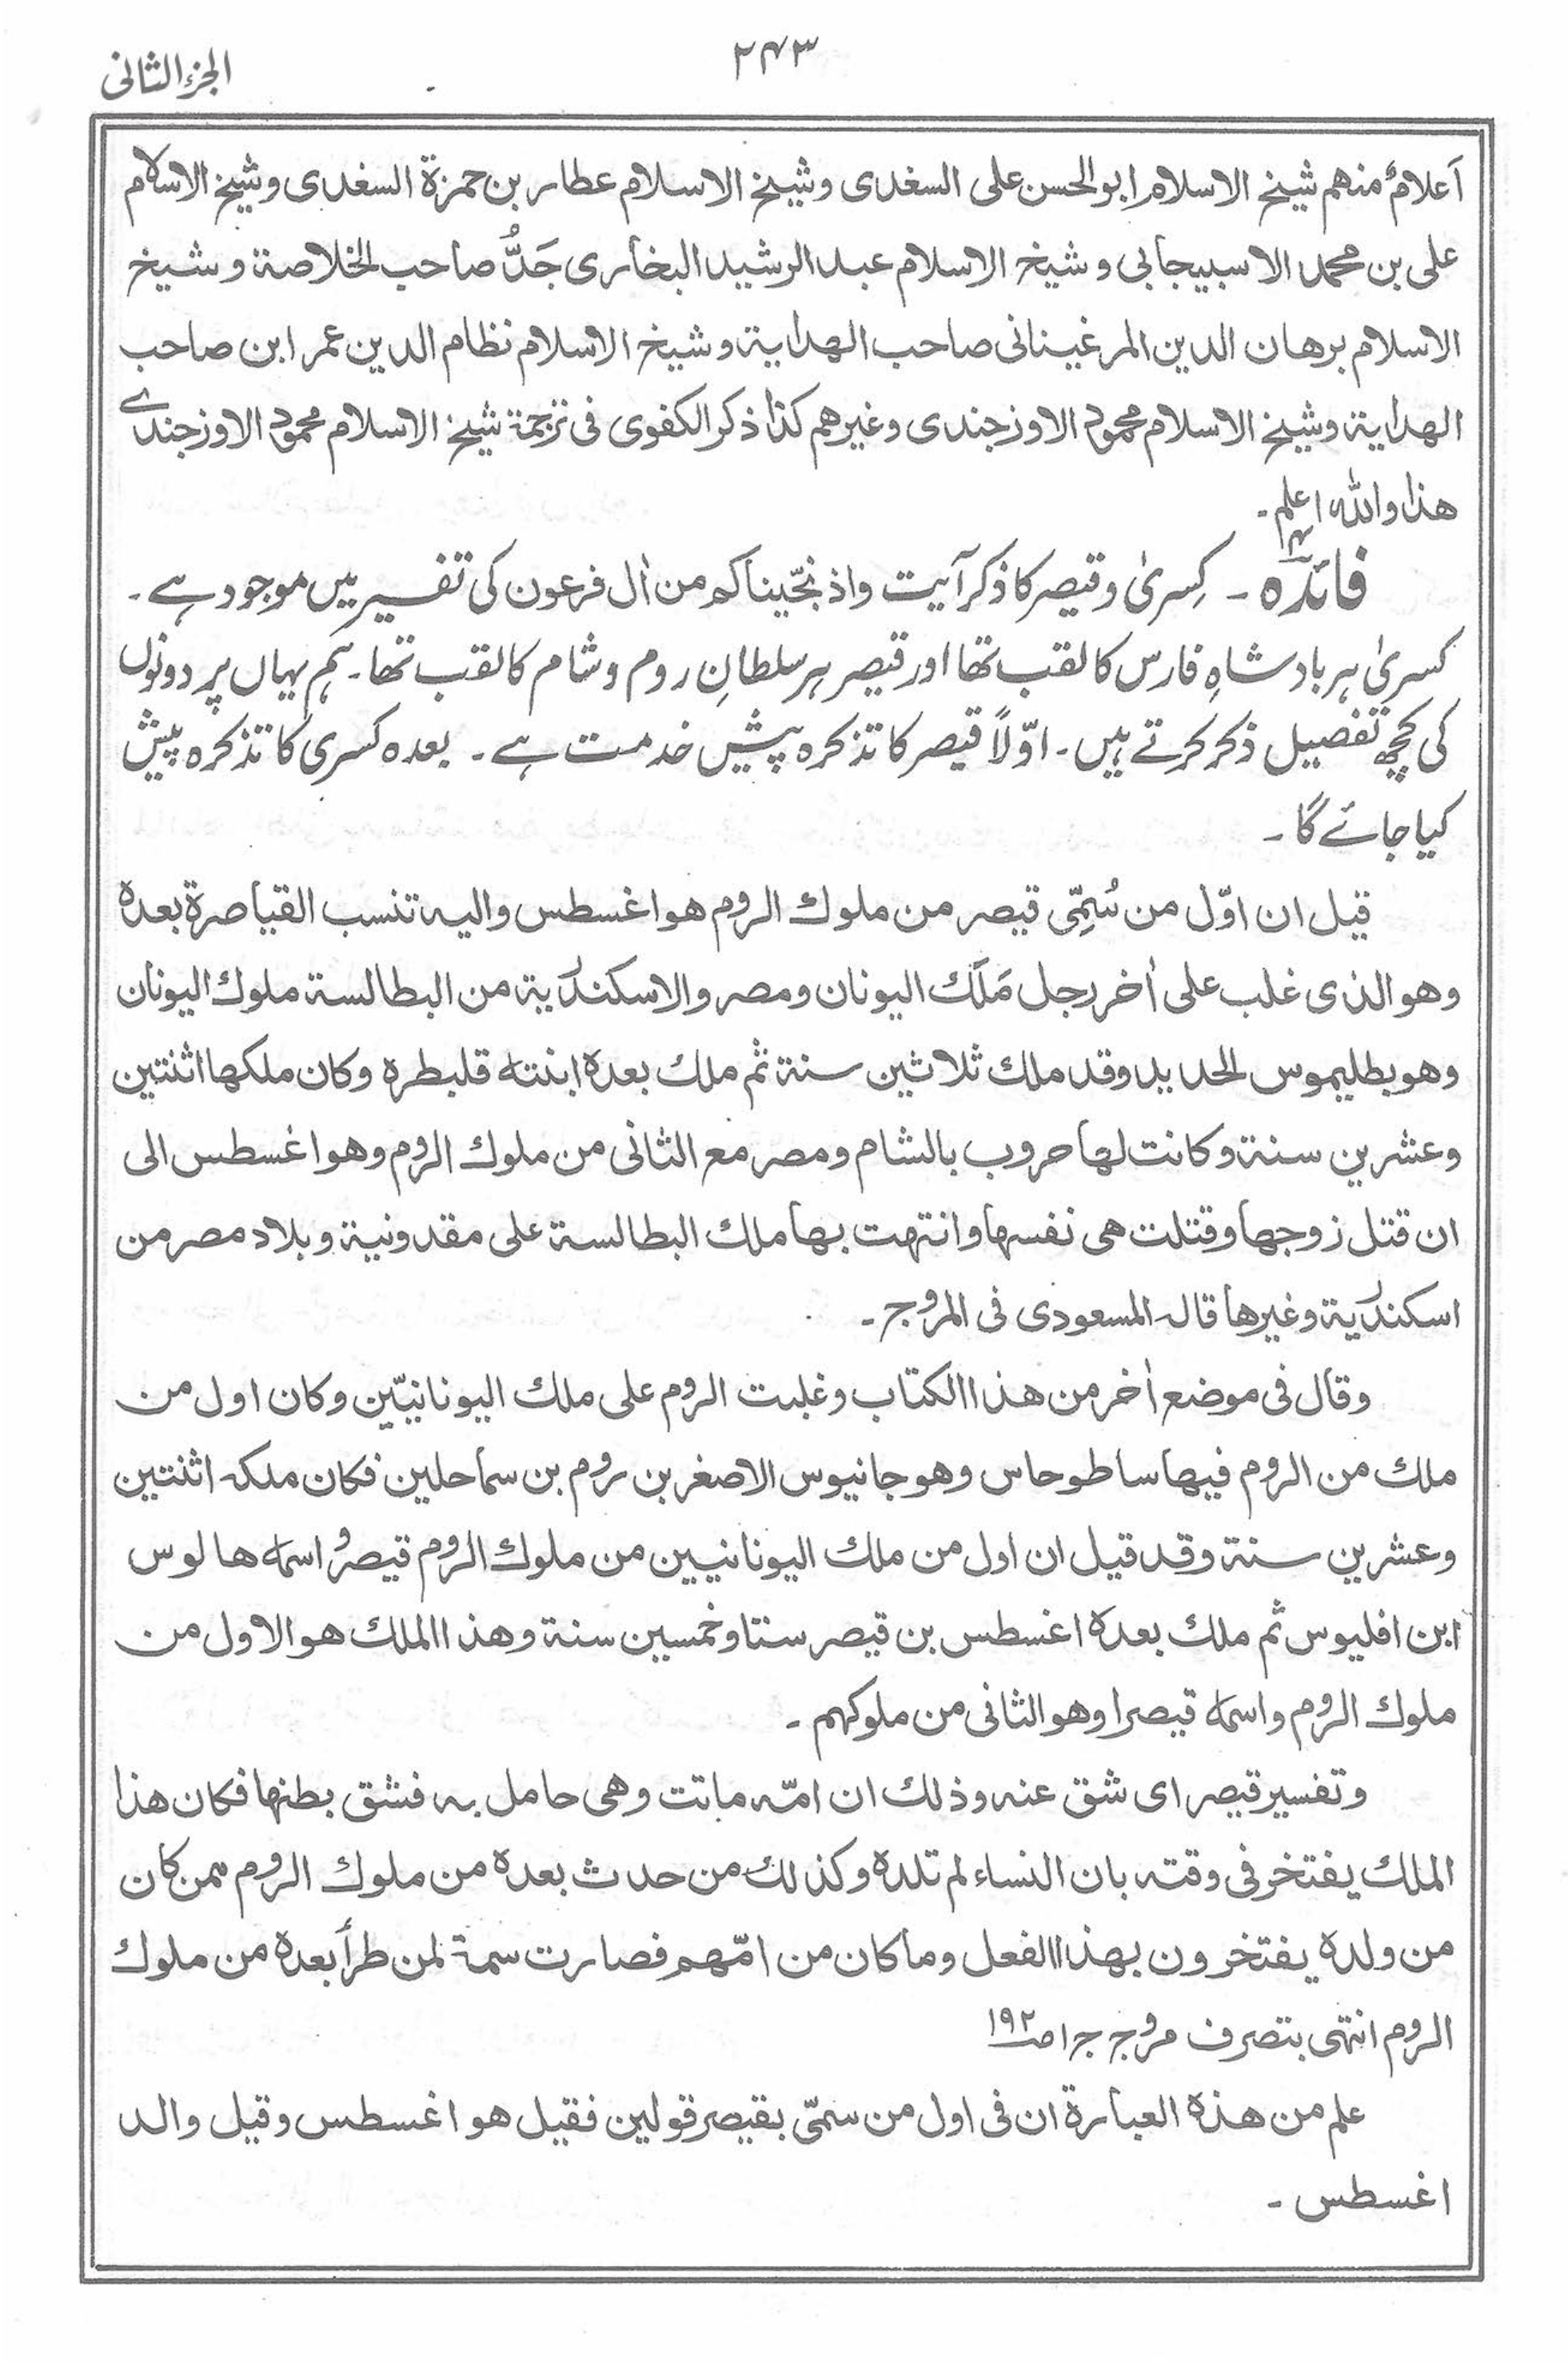 ۲۴۳
الجزء الثانی
اَعلامٌ منهم شیخ الاسلام ابو الحسن علی السغدی وشیخ الاسلام عطار بن حمزة السغدی وشیخ الاسلام
علی بن محمد الاسبیجابی وشیخ الاسلام عبد الرشید البخاری جَدُّ صاحب الخلاصة وشیخ
الاسلام برهان الدین المرغینانی صاحب الهدایة وشیخ الاسلام نظام الدین عمر ابن صاحب
الهدایة وشیخ الاسلام محمود الاوزجندی وغیرهم کذا ذکر الکفوی فی ترجمة شیخ الاسلام محمود الاوزجندی
هذا والله اعلم ۔
فائدہ ۔ کِسریٰ و قیصر کا ذکر آیت واذ نجّیناکم من اٰل فرعون کی تفسیر میں موجود ہے ۔
کسریٰ ہر بادشاہِ فارس کا لقب تھا اور قیصر ہر سلطانِ روم و شام کا لقب تھا ۔ ہم یہاں پر دونوں
کی کچھ تفصیل ذکر کرتے ہیں ۔ اوّلاً قیصر کا تذکرہ پیشِ خدمت ہے ۔ بعدہ کسری کا تذکرہ پیش
کیا جائے گا ۔
قیل ان اوّل من سُمِّی قیصر من ملوك الروم هو اغسطس والیه تنسب القیاصرة بعده
وهو الذی غلب علی اٰخر رجل مَلَك الیونان ومصر والاسکندریة من البطالسة ملوك الیونان
وهو بطلیموس الحدید وقد ملك ثلاثین سنة ثم ملك بعده ابنته قلبطره وکان ملکها اثنتین
وعشرین سنة وکانت لها حروب بالشام ومصر مع الثانی من ملوك الروم وهو اغسطس الی
ان قتل زوجها وقتلت هی نفسها وانتهت بها ملك البطالسة علی مقدونیة وبلاد مصر من
اسکندریة وغیرها قاله المسعودی فی المروج ۔
وقال فی موضع اٰخر من هذا الکتاب وغلبت الروم علی ملك الیونانیّین وکان اول من
ملك من الروم فیها ساطوحاس وهو جانیوس الاصغر بن روم بن سماحلین فکان ملکه اثنتین
وعشرین سنة وقد قیل ان اول من ملك الیونانیین من ملوك الروم قیصرُ واسمه هالوس
ابن افلیوس ثم ملك بعده اغسطس بن قیصر ستا وخمسین سنة وهذا الملك هو الاول من
ملوك الروم واسمه قیصرا وهو الثانی من ملوکهم ۔
وتفسیر قیصر ای شق عنه وذلك ان امّه ماتت وهی حامل به فشق بطنها فکان هذا
الملك یفتخر فی وقته بان النساء لم تلده وکذلك من حدث بعده من ملوك الروم ممن کان
من ولده یفتخرون بهذا الفعل وما کان من امّهم فصارت سمة لمن طرأ بعده من ملوك
الروم انتهی بتصرف مروج ج ۱ ص ۱۹۲
علم من هذه العبارة ان فی اول من سمّی بقیصر قولین فقیل هو اغسطس وقیل والد
اغسطس ۔